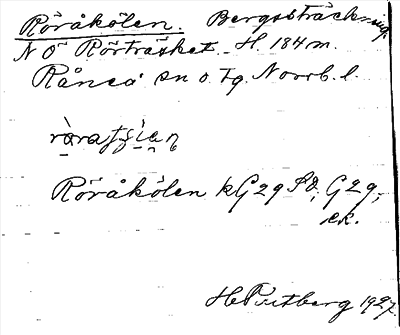 Röråkölen. Bergssträckning
N Ö Rörträsket. H. 184 m.
Råneå sn o. tg. Norrb. l.
Röråkölen kG29 Sd, G29,
ek.
H Pontberg 1927.